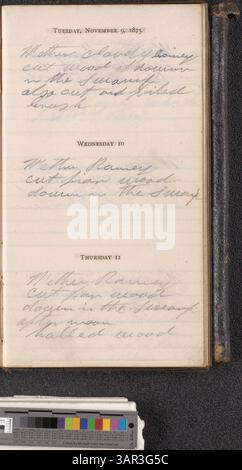 TUESDAY, NOVEMBER 9, 1875.
Wether cloudy & Rainey
cut wood down
in the Swamp
also cut and piled
brugh
WEDNESDAY 10
Wether Rainey
cut pan wood
down in the Swamp
THURSDAY 11
Wether Rainey
cut pan wood
down in the Swamp
after noon
halled wood
alamy
Image ID: 3AR3G5C
www.alamy.com